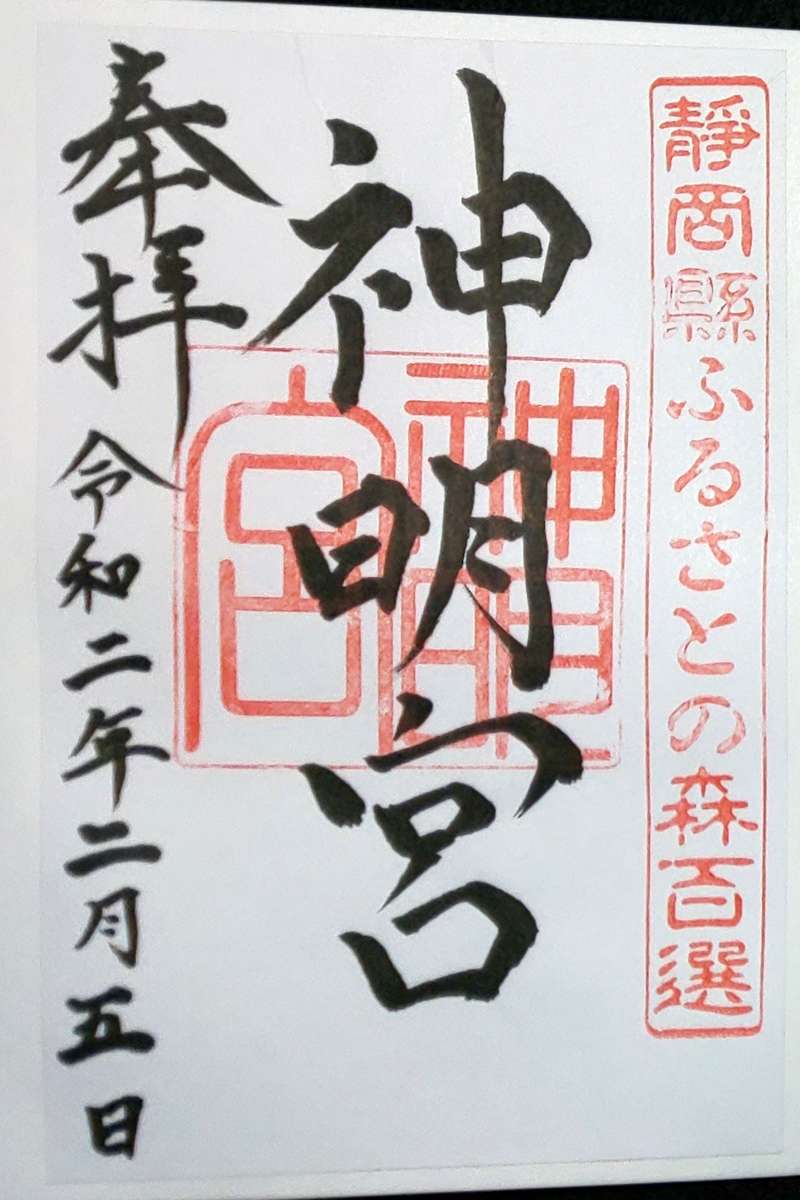 靜岡縣ふるさとの森百選
神明宮
神明
宮
奉拝
令和二年二月五日